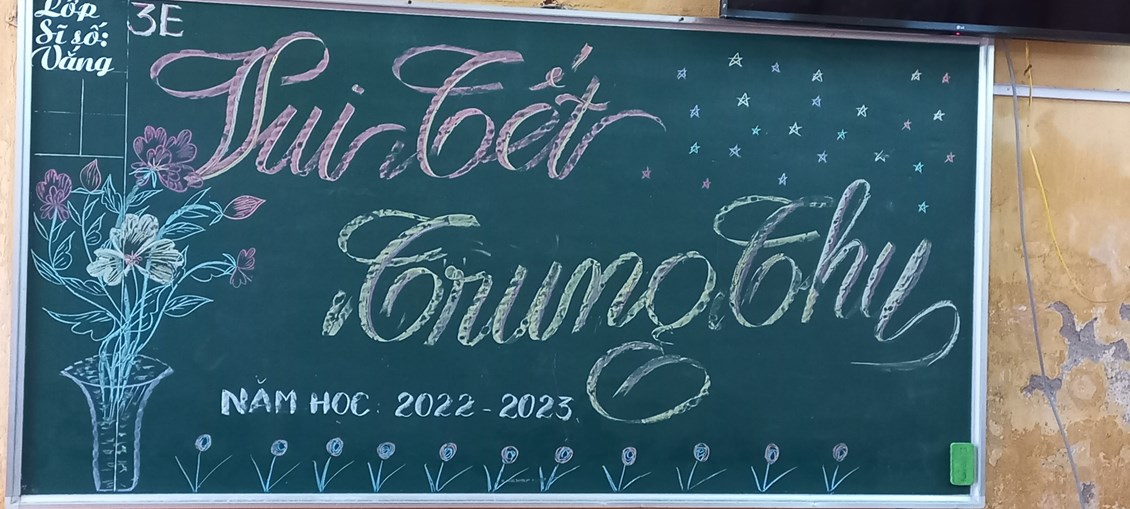 Lớp 3E
Sĩ số:
Vắng
Vui Tết
Trung Thu
NĂM HỌC: 2022-2023